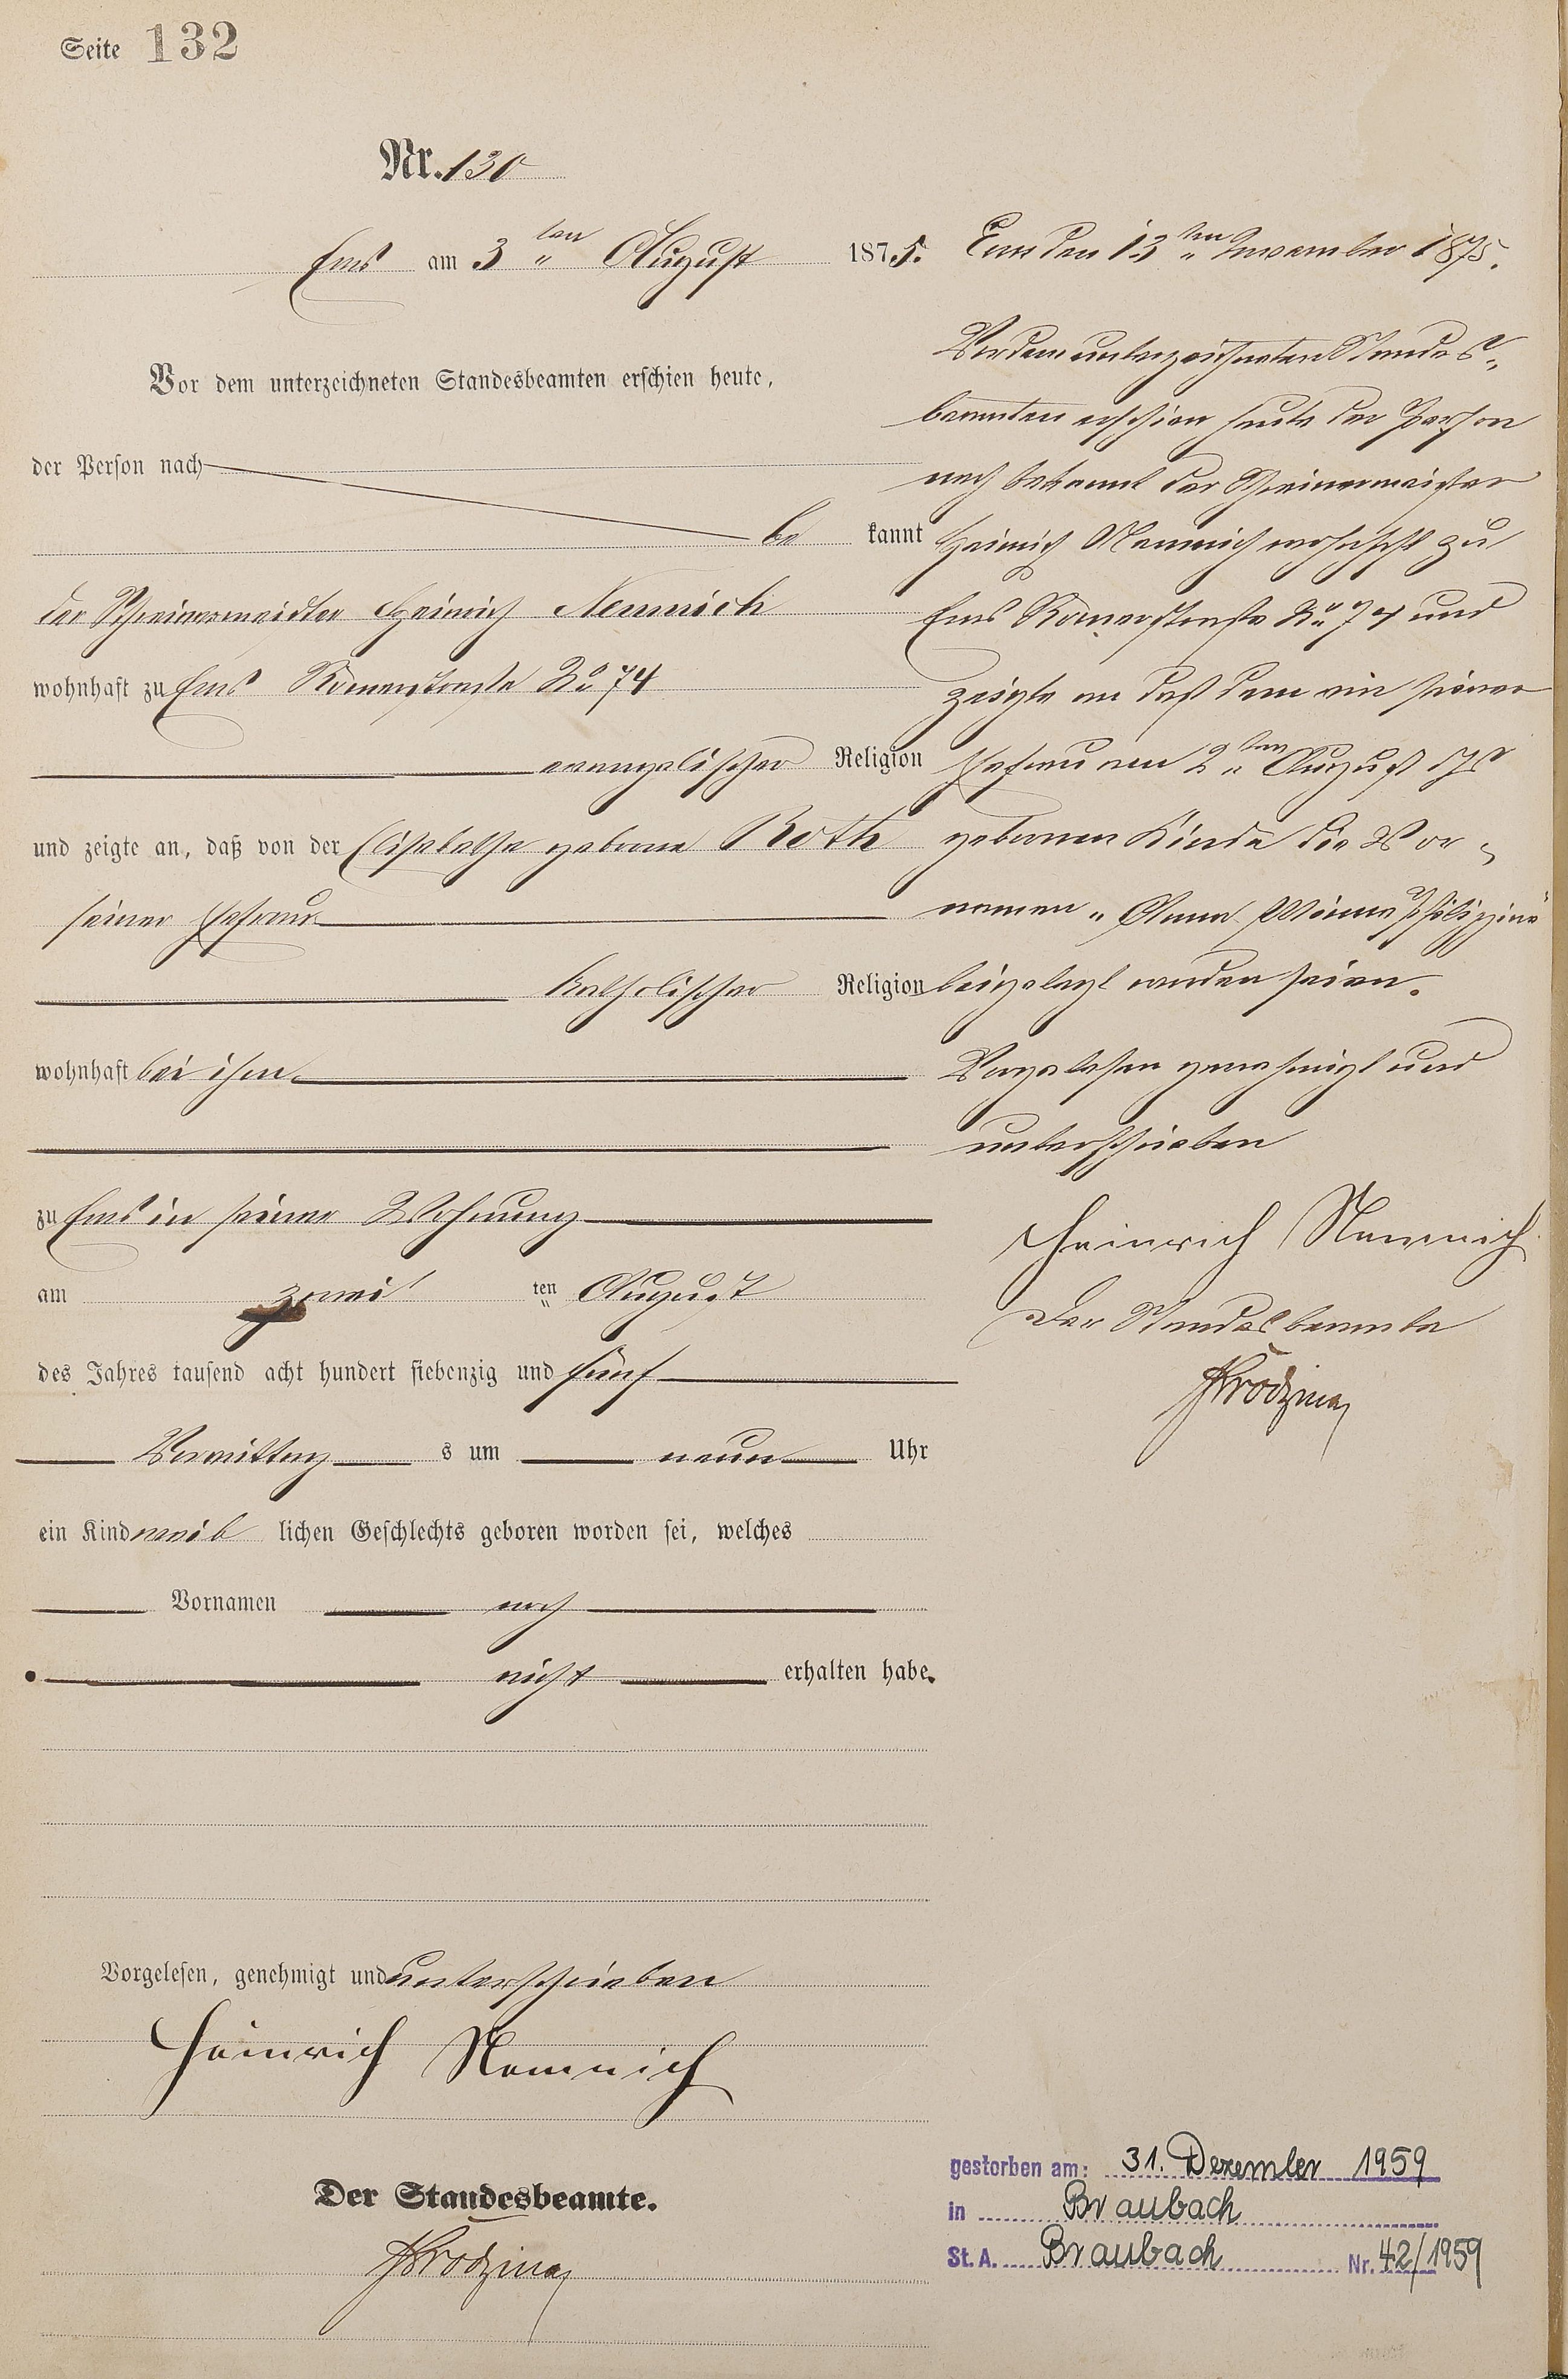 Seite 132
Nr. 130
Ems am 3ten August 1875.
Vor dem unterzeichneten Standesbeamten erschien heute,
der Person nach
be kannt
der Schreinermeister Heinrich Nemnich
wohnhaft zu Ems Römerstraße No 74
evangelischer Religion
und zeigte an, daß von der Elisabetha geborne Roth
seiner Ehefrau
katholischer Religion
wohnhaft bei ihm
zu Ems in seiner Wohnung
am zwei ten August
des Jahres tausend acht hundert siebenzig und fünf
Vormittag s um neun Uhr
ein Kind weib lichen Geschlechts geboren worden sei, welches
Vornamen noch
nicht erhalten habe.
Vorgelesen, genehmigt und unterschrieben
Heinrich Nemnich
Der Standesbeamte.
Ems den 13ten November 1875.
Vor dem unterzeichneten Standes-
beamten erschien heute der Person
nach bekannt der Schreinermeister
Heinrich Nemnich wohnhaft zu
Ems Römerstraße No 74 und
zeigte an daß dem von seiner
Ehefrau am 2ten August
gebornen Kinde die Vor-
namen "Anna Philippine
beigelegt worden seien.
Vorgelesen genehmigt und
unterschrieben
Heinrich Nemnich
Der Standesbeamte
gestorben am: 31. Dezember 1959
in Braubach
St. A. Braubach Nr. 42/1959